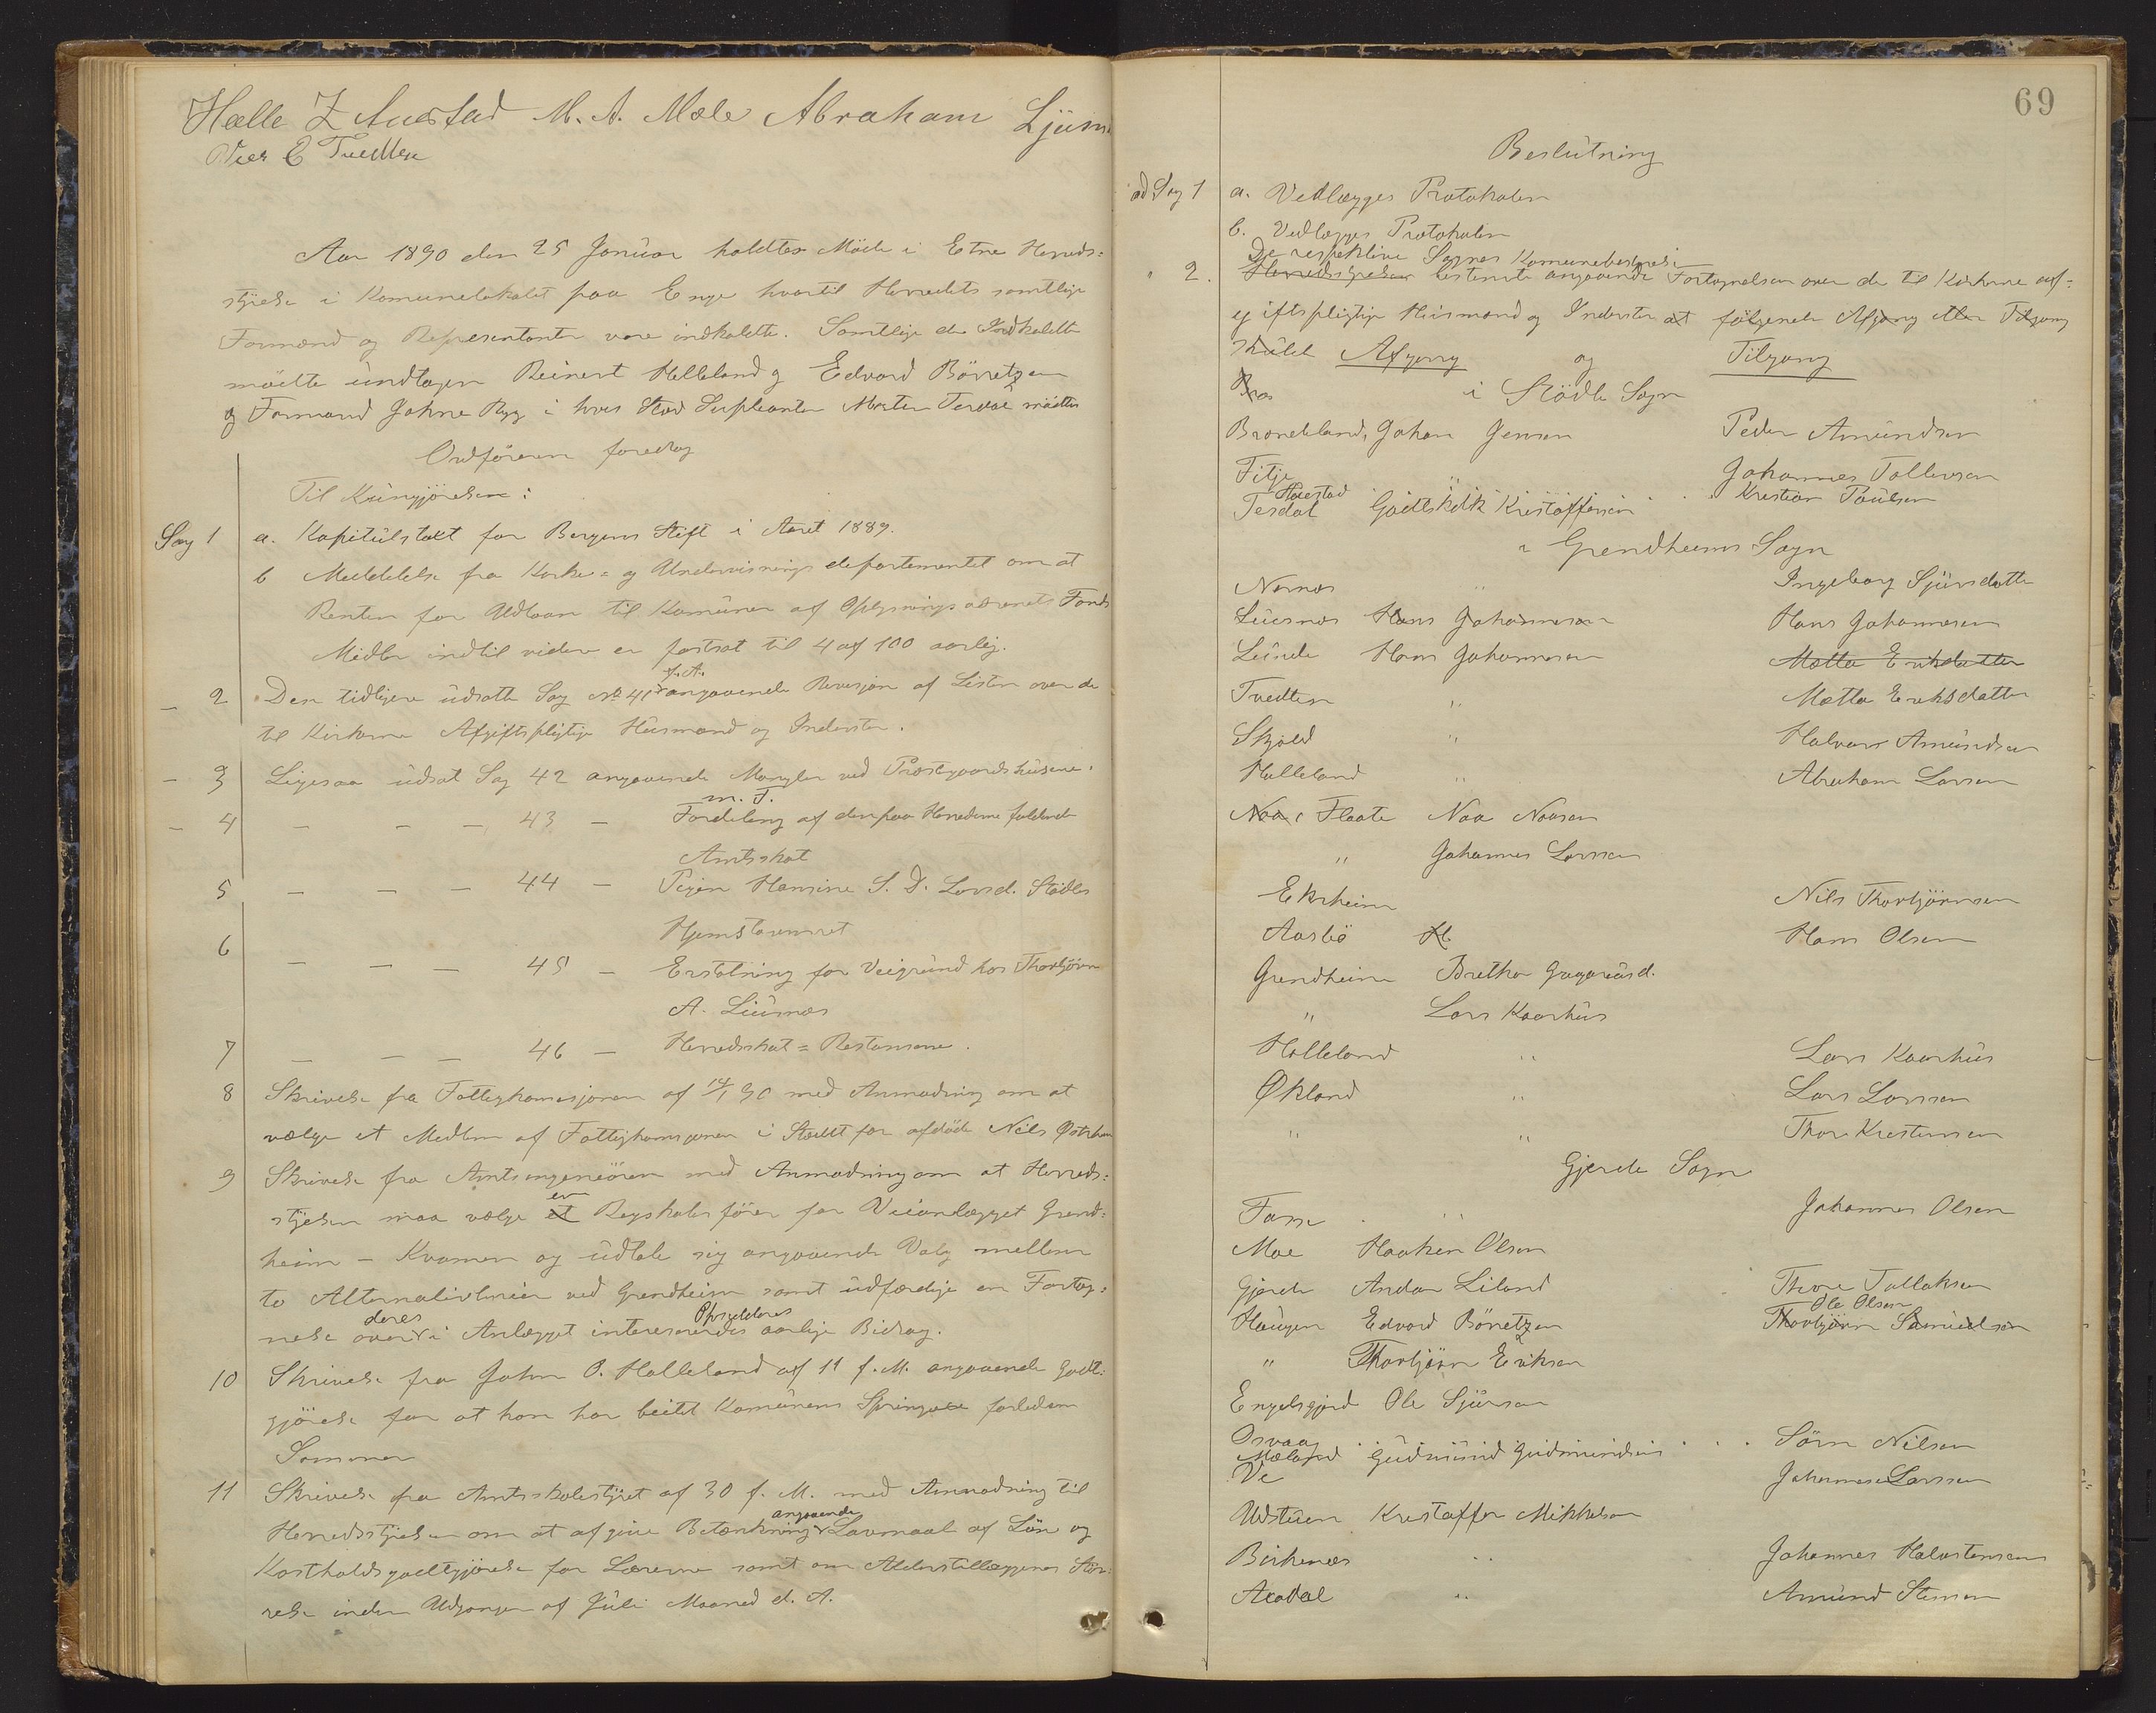 Halle Z Austad M. A. Mæle Abraham Ljûsn
Peer E Tvedten
Aar 1890 den 25 Janûar holdtes Möde i Etne Herreds=
styrelse i Komunelokalet paa Enge hvortil Herredets samtlige
Formænd og Representanter vare indkaldte. Samtlige de Indkaldte
mödte ûndtagen Reinert Helleland og Edvard Börretzen
og Formand Johne Ryg i hvis Sted Supleanten Morten Terdal mödte
Ordföreren foredrog
Til Kûngjörelse:
Sag 1 a. Kapitûlstaxt for Bergens Stift i Aaret 1889.
b Meddelelse fra Kirke= og Undervisnings departementet om at
Renten for Udlaan til Komûner af Oplysningsvæsenets Fonds
Midler indtil videre er fastsat til 4 af 100 aarlig.
– 2 Den tidligere ûdsatte Sag № 41 f. A. angaaende Revisjon af Listen over de
til Kirkerne Afgiftspligtige Hûsmænd og Inderster.
– 3 Ligesaa ûdsat Sag 42 angaaende Mangler ved Præstgaardshûsene.
m. F.
– 4 – – – 43 – Fordeling af den paa Herrederne faldende
Amtsskat
5 – – – 44 – Pigen Hansine S. D. Larsd. Stödles
Hjemstavnsret
6 – – – 45 – Erstatning for Veigrûnd hos Thorbjörn
A. Liûsnæs
7 – – – 46 – Herredsskat= Restansene.
8 Skrivelse fra Fattigkomisjonen af 14/1 90 med Anmodning om at
vælge et Medlem af Fattigkomisjonen i Stedet for afdöde Nils Østrheim
9 Skrivelse fra Amtsingeniören med Anmodning om at Herreds=
styrelsen maa vælge et en Regnskabsförer for Veianlægget Grind=
heim – Kvamen og ûdtale sig angaaende Valg mellem
to Alternativlinier ved Grindheim samt ûdfærdige en Forteg=
nelse over de i Anlægget interesserede Opsidderes deres aarlige Bidrag.
10 Skrivelse fra John O. Halleland af 11 f. M. angaaende Godt=
gjörelse for at han har beitet Komûnens Springoxe forleden
Sommer
11 Skrivelse fra Amtsskolestyret af 30 f. M. med Anmodning til
Herredsstyrelsen om at afgive Betænkning angaaende Lavmaal af Lön og
Kostholdsgodtgjörelse for Lærerne samt om Alderstillæggenes Stör=
relse inden Udgangen af Jûli Maaned d. A.
69
Beslûtning
ad Sag 1 a. Vedlægges Protokolen
b. Vedlægges Protokolen
De respektive Sognes Komunebestyrelse
" 2. Herredsstyrelsen bestemte angaaende Fortegnelsen over de til Kirkerne afg=
iftspligtige Hûsmænd og Inderster at fölgende Afgang eller Tilgang
skûlde Afgang og Tilgang
i Stödle Sogn
Brændeland, Johan Jensen Peder Amûndsen
Fitje " Johannes Tollevsen
Austad Kristian Paûlsen
Terdal Godtskalk Kristoffersen
i Grendheims Sogn
Nernæs " Ingeborg Sjûrsdatter
Lûsnæs Hans Johannesen Hans Johannesen
Leinde Hans Johannesen Mætta Eriksdatter
Tvedten " Mætta Eriksdatter
Skjold " Halvar Amûndsen
Halleland " Abraham Larsen
Naa, Flaate Naa Naasen
" Johannes Larsen
Ekrheim Nils Thorbjörnsen
Aasbö Hans Olsen
Grendheim Bretha Gregoriûsd.
" Lars Kaarhûs
Halleland " Lars Kaarhûs
Økland " Lars Larsen
" " Thore Krestensen
Gjerde Sogn
Tarre " Johannes Olsen
Moe Haaken Olsen
Gjerde Andar Liland Thore Tollaksen
Ole Olsen
Haûgen Edvard Börretzen Thorbjörn Samûelsen
" Thorbjörn Eriksen
Engelsgjerd Ole Sjûrsen
Osvaag Sörn Nilsen
Mæland Gûdmûnd Gûdmûndsen
Ve Johannes Larsen
Udstûen Kristoffer Mikkelsen
Birkenæs " Johannes Halvstensen
Aadal " Amûnd Steinsen